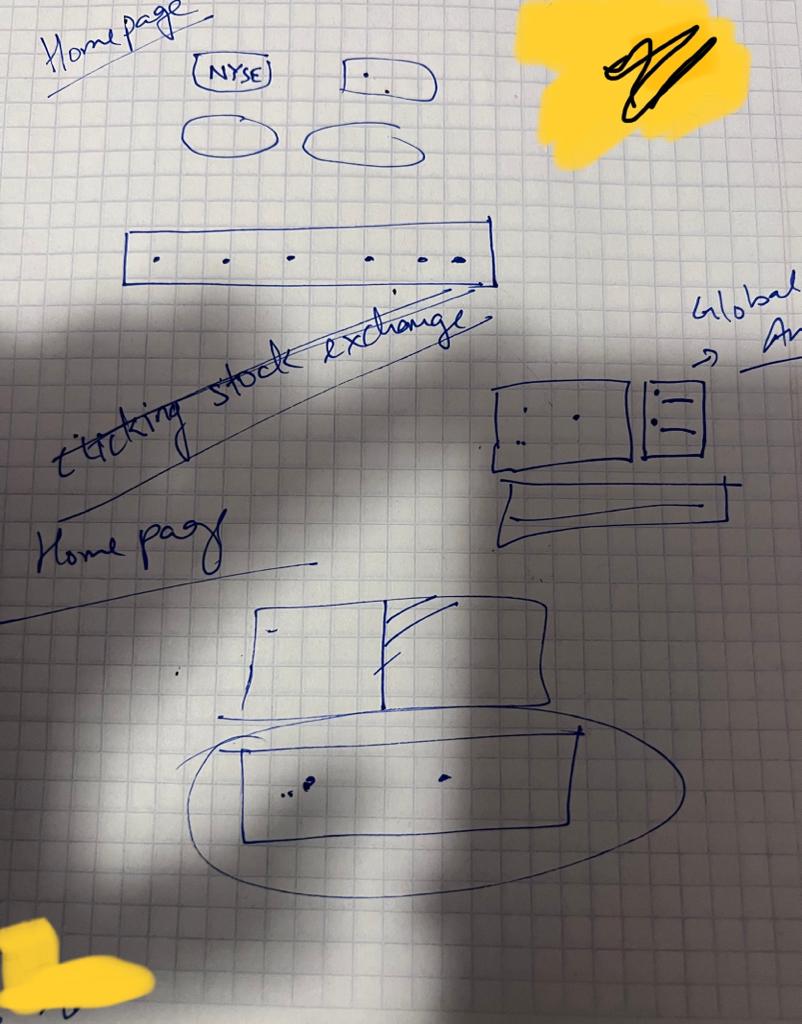 Homepage
NYSE
ticking stock exchange
Global
Home page